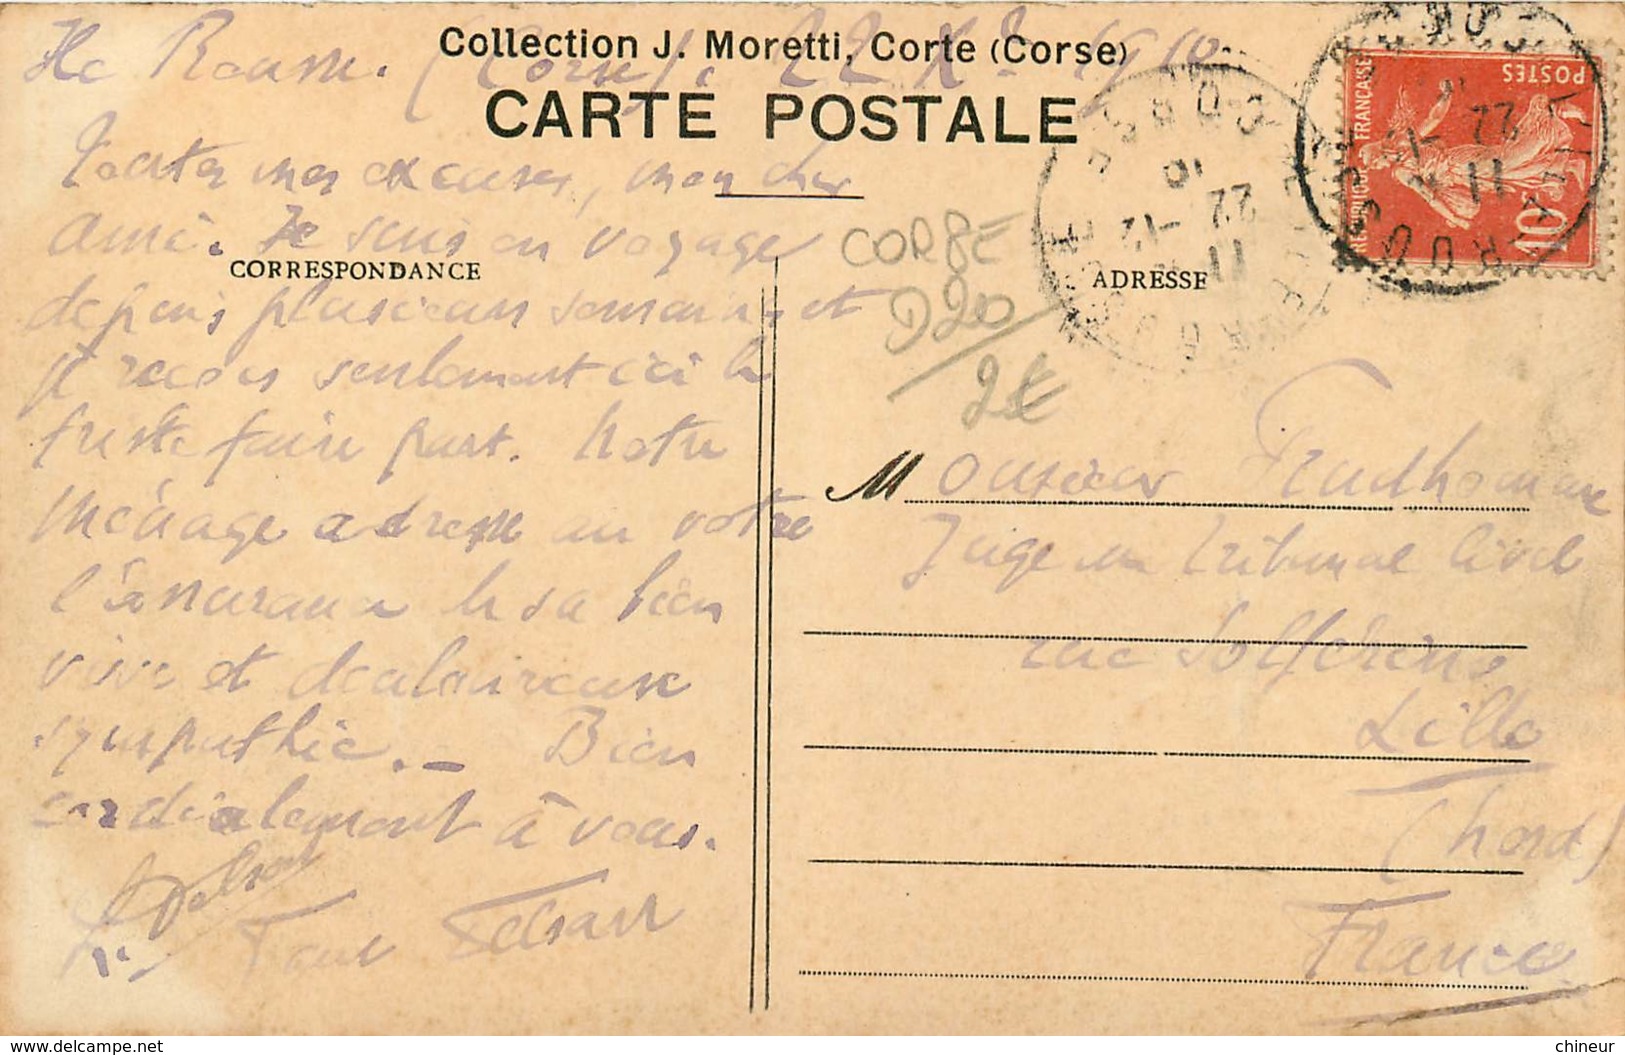 Ile Rousse. (Corse). 22 Xbre 1910.
Collection J. Moretti, Corte (Corse)
CARTE POSTALE
Toutes mes excuses, mon cher
ami. Je suis en voyage
CORRESPONDANCE
depuis plusieurs semaines et
je reçois seulement ici le
triste faire part. Notre
ménage adresse au votre
l'assurance de sa bien
vive et douloureuse
sympathie. _ Bien
cordialement à vous.
Paul
CORSE
D20
2€
ADRESSE
Monsieur Prudhomme
Juge au Tribunal Civil
rue Solférino
Lille
(Nord)
France
REPUBLIQUE FRANCAISE
POSTES
10
CORSE
11
22 -12
10
CORSE
11
22
chineur
www.delcampe.net